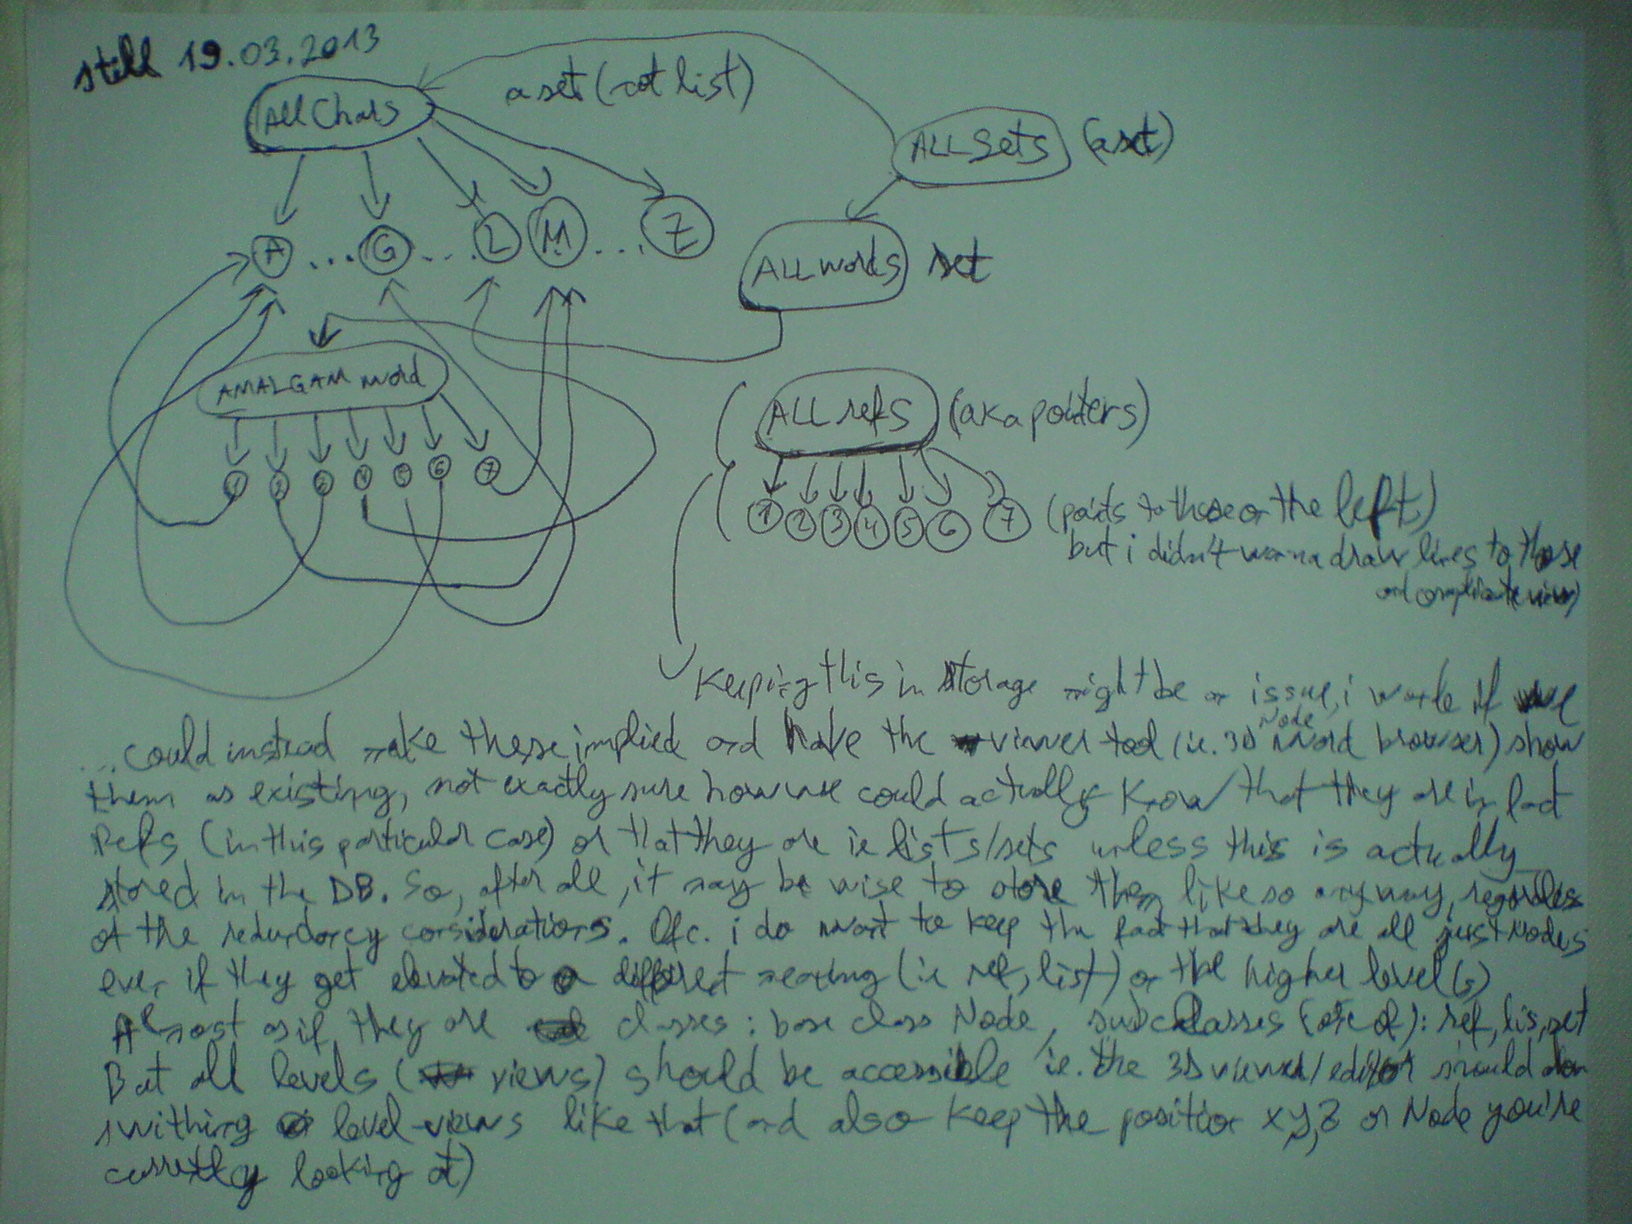 still 19.03.2013
AllChars
a set (not list)
ALLSets (a set)
A ... G ... L M ... Z
ALLwords set
AMALGAM word
1 2 3 4 5 6 7
ALL refs (aka pointers)
1 2 3 4 5 6 7 (points to those on the left)
but i didn't wanna draw lines to those
and complicate view)
Keeping this in storage might be an issue, i wonder if we
...could instead make these implied and have the viewer tool (ie. 3D Node word browser) show
them as existing, not exactly sure how we could actually know that they are in fact
Refs (in this particular case) or that they are ie lists/sets unless this is actually
stored in the DB. So, after all, it may be wise to store them like so anyway, regardless
of the redundancy considerations. Ofc. i do want to keep the fact that they are all just Nodes
even if they get elevated to a different meaning (ie ref, list) on the higher level(s)
Almost as if they are classes: base class Node, subclasses (one of): ref, lis, set
But all levels (views) should be accessible ie. the 3D viewer/editor should
swithing level-views like that (and also keep the position x y, z or Node you're
currently looking at)